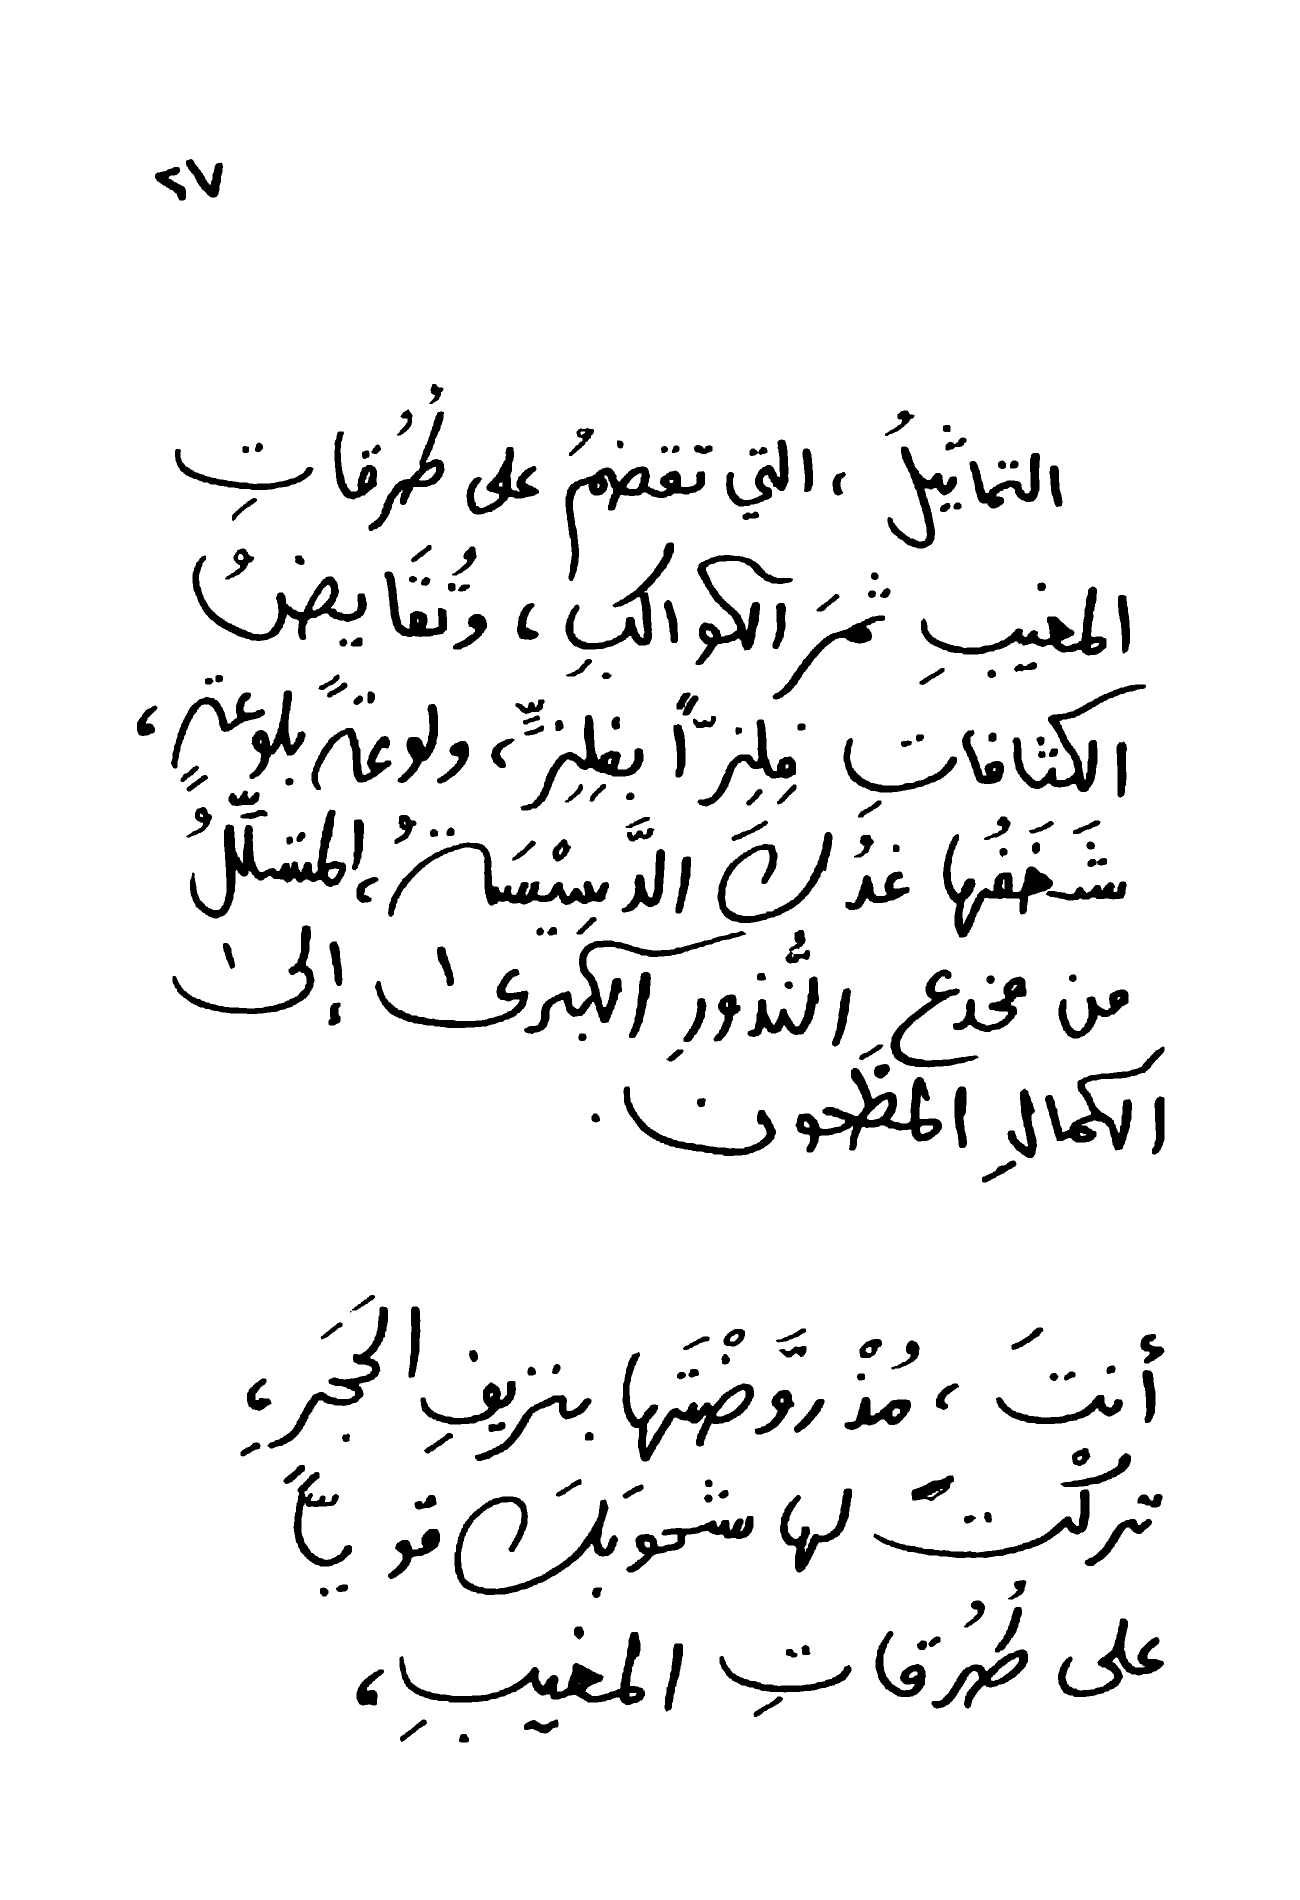 ٢٧
التماثيلُ ، التي تقضمُ على طُرُقاتِ
المغيبِ ثمرَ الكواكبِ ، وتُقَايضُ
الكثافاتِ فِلِزّاً بفِلِزٍّ ، ولوعةً بلوعةٍ ،
شَخَفُها غدُكَ الدَّسِيْسَةُ ، المتسلِّلُ
من مخدع النُّذورِ الكبرىٰ إلىٰ
الكمالِ المطَحون .
أنتَ ، مُذْ روَّضْتَها بنزيفِ الحَجَرِ ،
تركْتَ لها شحوبَكَ قوياًّ
على طُرُقاتِ المغيبِ ،